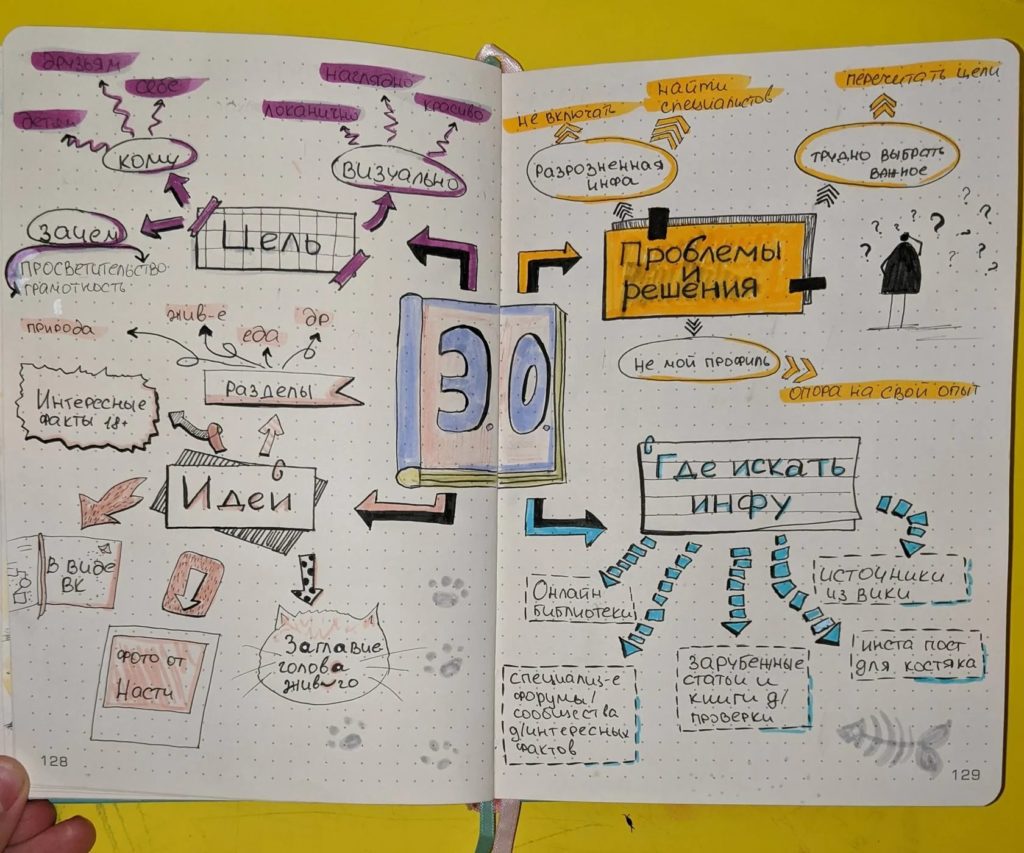 друзьям
себе
детям
кому
наглядно
локанично
красиво
визуально
зачем
Цель
просветительство.
грамотность.
не включать
найти
специалистов
перечитать цели
разрозненная
инфа
трудно выбрать
важное
Проблемы
и
решения
? ? ? ? ? ? ? ? ?
не мой профиль
опора на свой опыт
З.О.
природа
жив-е
еда
др
разделы
Интересные
факты 18+
Идеи
В виде
ВК
фото от
Насти
Заглавие
голова
живого
Где искать
инфу
Онлайн
библиотеки
источники
из вики
специализ-е
форумы/
сообщества
д/интересных
фактов
зарубежные
статьи и
книги д/
проверки
инста пост
для костяка
128
129